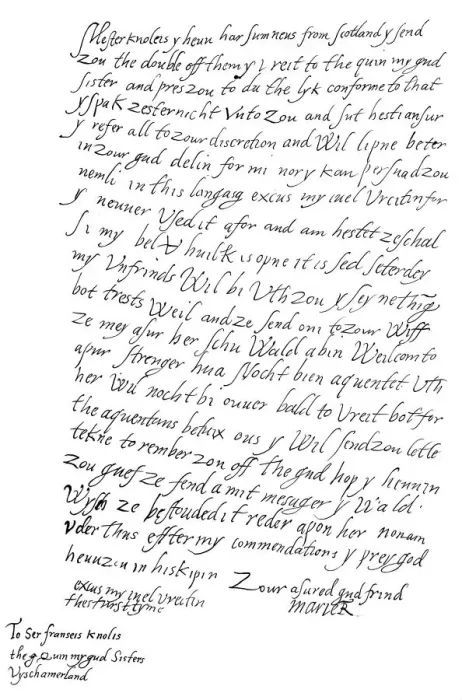 Mester knoleis y heuu har sum neus from scotland y send
zou the double off them y vreit to the quin my gud
sister and pres zou to du the lyk conforme to that
y spak zesternicht Vnto zou and sut hesti ansur
y refer all to zour discretion and Wil lipne beter
in zour gud delin for mi nor y kan persuad zou
nemli in this langasg excus my iuel Vreitin for
y neuuer Vsed it afor and am hestet ze schal
si my bel Vhuilk is opne it is sed seterdey
my Vnfrinds Wil bi Vth zou y sey nething
bot trests Weil and ze send oni to zour Wiff
ze mey asur her schu Wald a bin Weilcom to
apur strenger hua Nocht bien aquentet Vth
her Wil nocht bi ouuer bald to Vreit bot for
the aquentans betuix ous y Wil send zou letle
tekne to rember zou off the gud hop y heuu in
zou guef ze fend a mit mesager y Wald
Wysh ze bestouded it reder apon her non am
Vder thus effter my commendations y prey god
heuu zou in his kipin
Zour asured gud frind
Marie R
excus my iuel Vreitin
thes furst tyme
To Ser franseis knolis
the Quin my gud Sisters
Vyschamerland